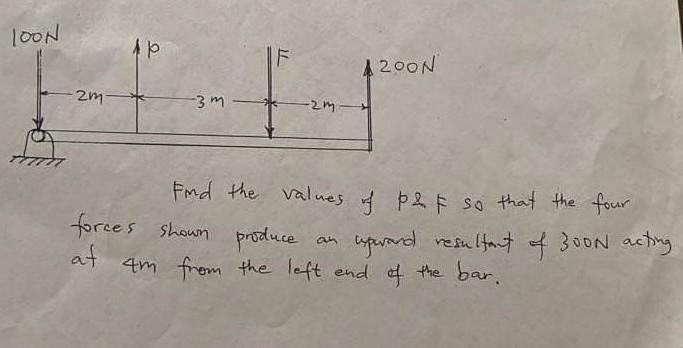 100N
P
F
200N
2m
3m
2m
Find the values of P & F so that the four
forces shown produce an upward resultant of 300N acting
at 4m from the left end of the bar.